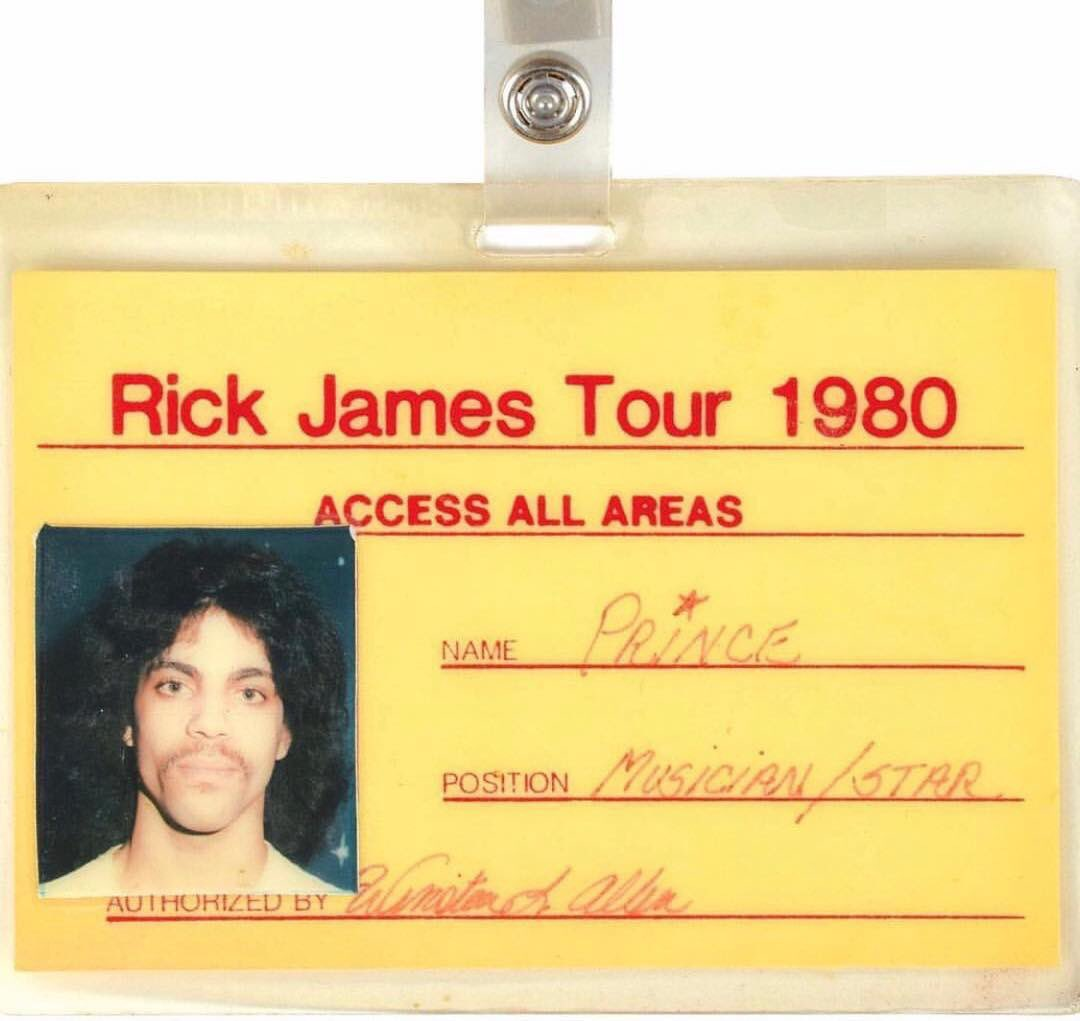 Rick James Tour 1980
ACCESS ALL AREAS
NAME PRiNCE
POSITION MUSiCiAN/STAR
AUTHORIZED BY Winston L. Allen